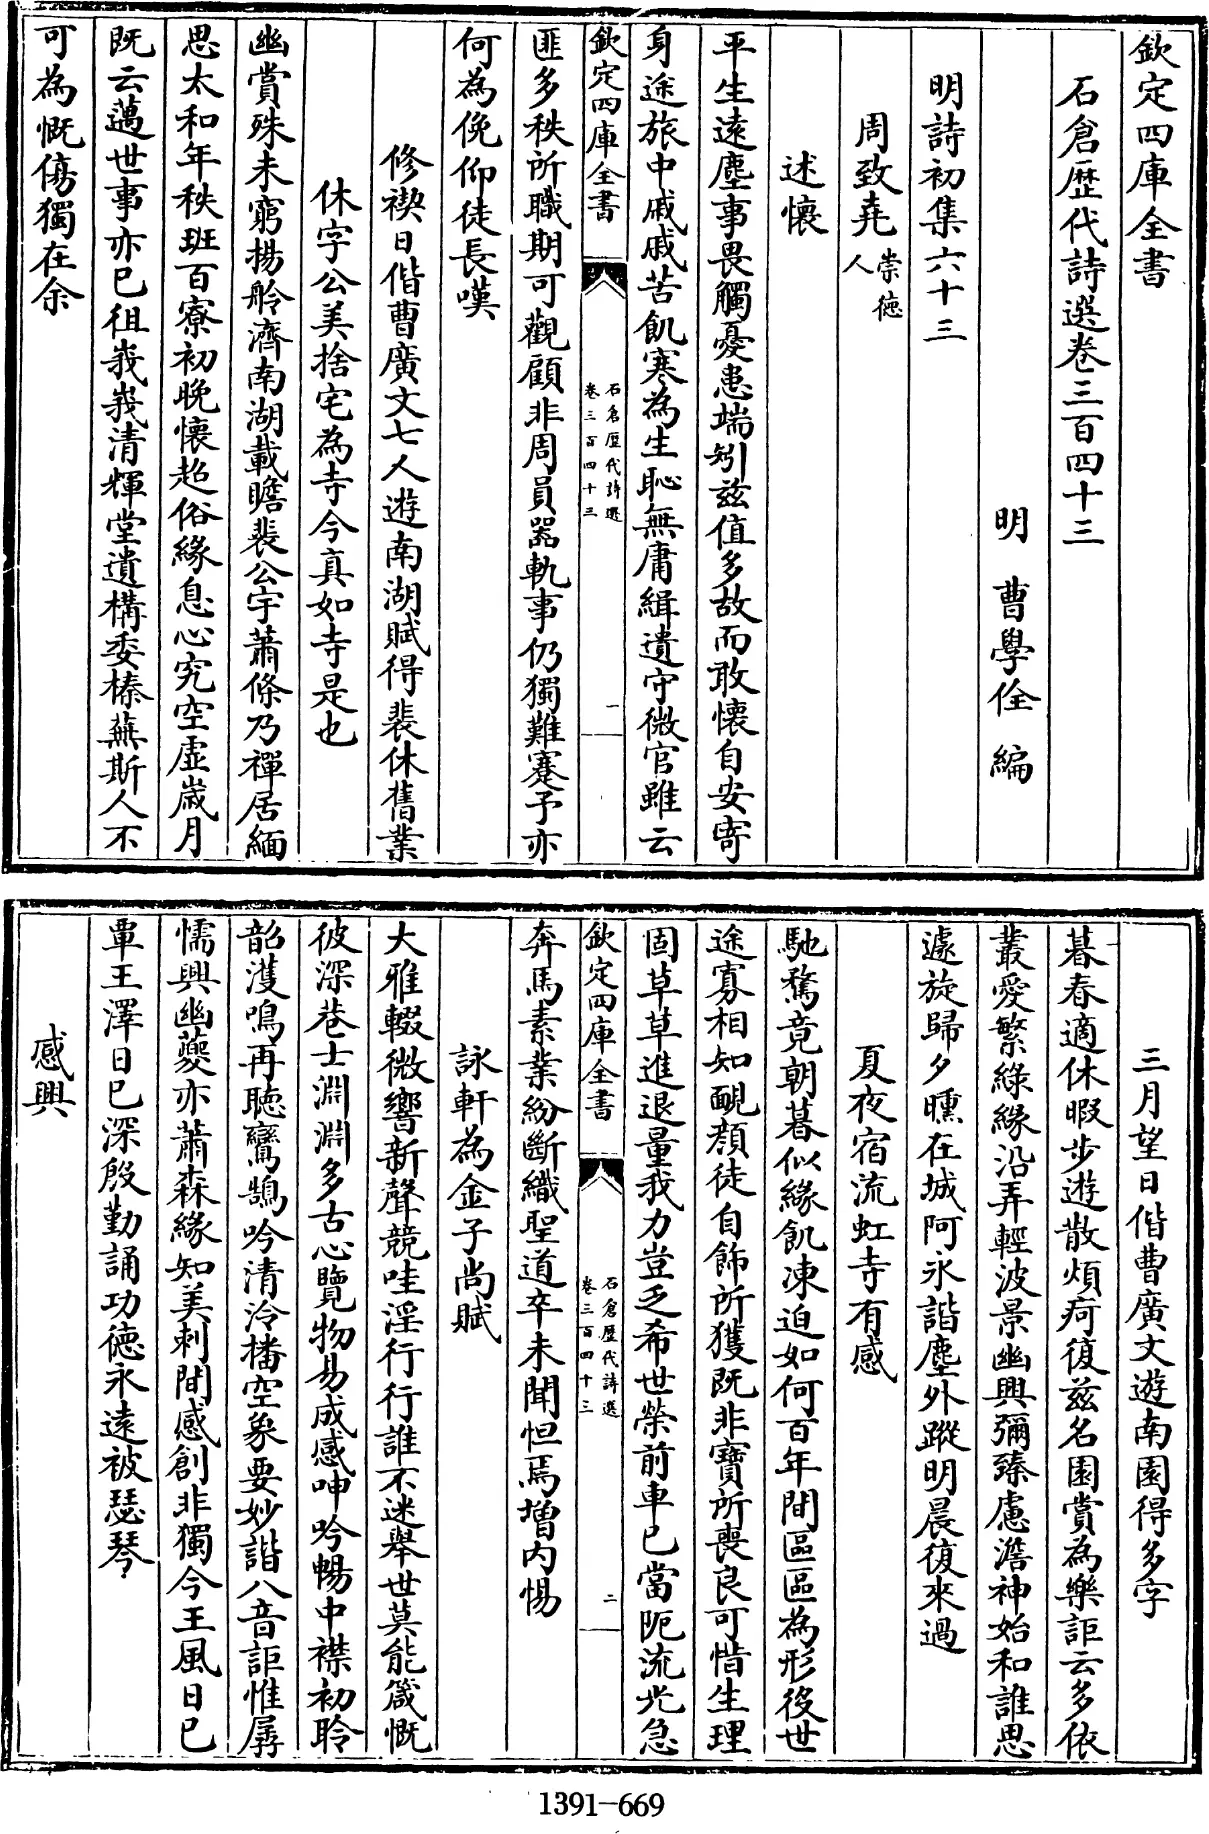 欽定四庫全書
石倉歷代詩選卷三百四十三
明　曹學佺　編
明詩初集六十三
周致堯崇德人
述懷
平生遠塵事畏觸憂患端矧兹值多故而敢懷自安寄
身途旅中戚戚苦飢寒為生恥無庸緝遺守微官雖云
欽定四庫全書
石倉歷代詩選
卷三百四十三
一
匪多秩所職期可觀顧非周員器軌事仍獨難蹇予亦
何為俛仰徒長嘆
修禊日偕曹廣文七人遊南湖賦得裴休舊業
休字公美捨宅為寺今真如寺是也
幽賞殊未窮揚舲濟南湖載瞻裴公宇蕭條乃禪居緬
思太和年秩班百寮初晚懷超俗緣息心究空虛歲月
既云邁世事亦已徂峩峩清輝堂遺構委榛蕪斯人不
可為慨傷獨在余
三月望日偕曹廣文遊南園得多字
暮春適休暇步遊散煩疴復兹名園賞為樂詎云多依
叢愛繁綠緣沿弄輕波景幽興彌臻慮澹神始和誰思
遽旋歸夕曛在城阿永諧塵外蹤明晨復來過
夏夜宿流虹寺有感
馳騖竟朝暮似緣飢凍迫如何百年間區區為形役世
途寡相知靦顏徒自飾所獲既非寶所喪良可惜生理
固草草進退量我力豈乏希世榮前車已當阨流光急
欽定四庫全書
石倉歷代詩選
卷三百四十三
二
奔馬素業紛斷織聖道卒未聞怛焉增内惕
詠軒為金子尚賦
大雅輟微響新聲競哇淫行行誰不迷舉世莫能箴慨
彼深巷士淵淵多古心覽物易成感呻吟暢中襟初聆
韶濩鳴再聽鸞鵠吟清泠播空象要妙諧八音詎惟孱
懦興幽藪亦蕭森緣知美刺間感創非獨今王風日已
覃王澤日已深殷勤誦功德永遠被瑟琴
感興
1391-669